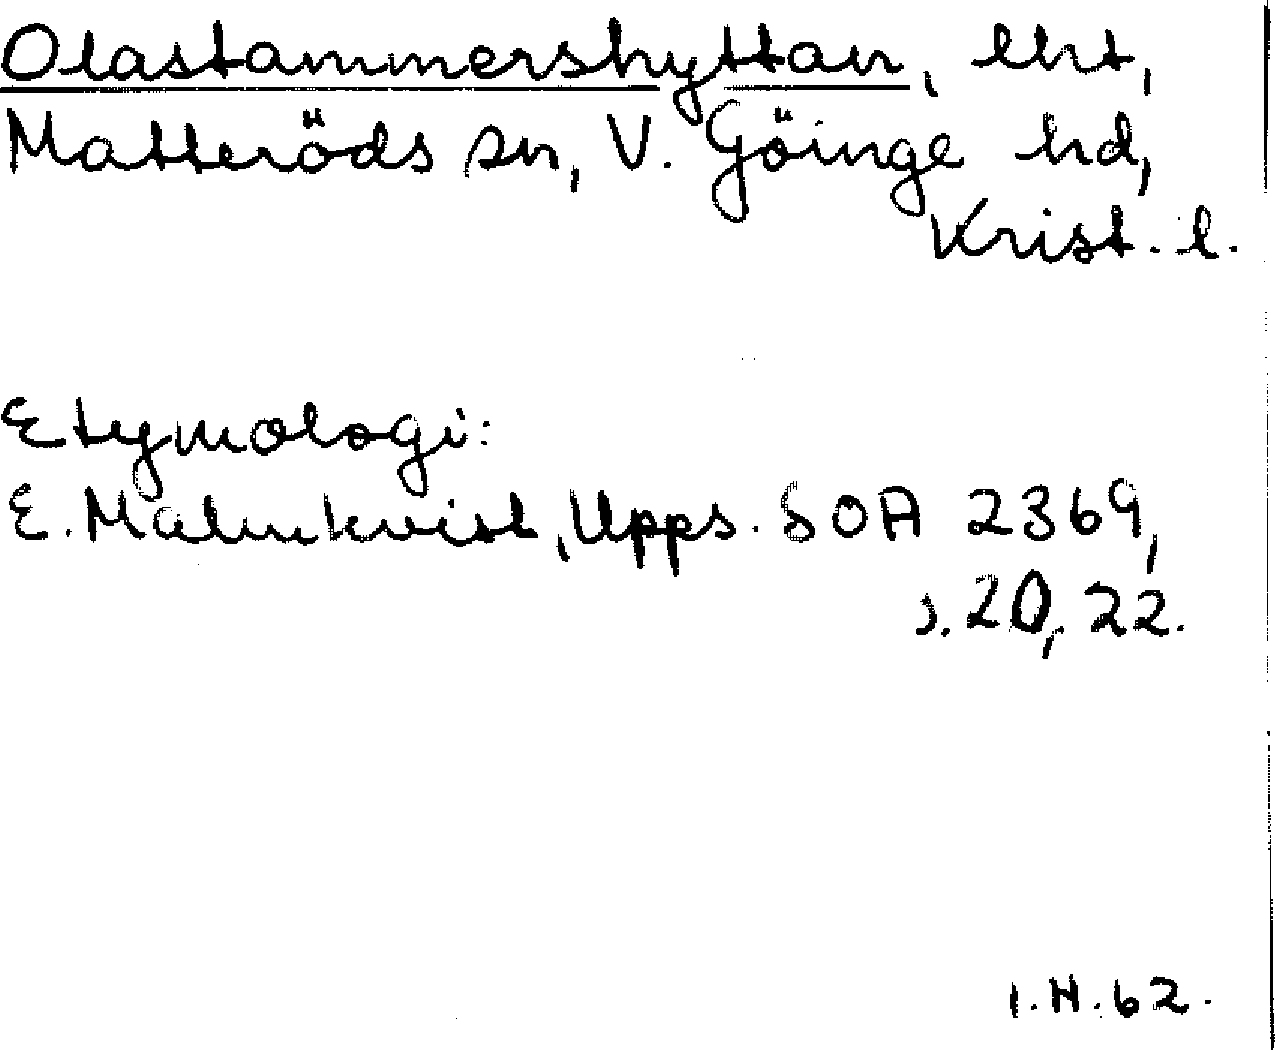 Olastammershyttan, lht,
Matteröds sn, V. Göinge hd,
Krist. l.
Etymologi:
E. Malmkvist, Upps. SOA 2369,
s. 20, 22.
I.H. 62.